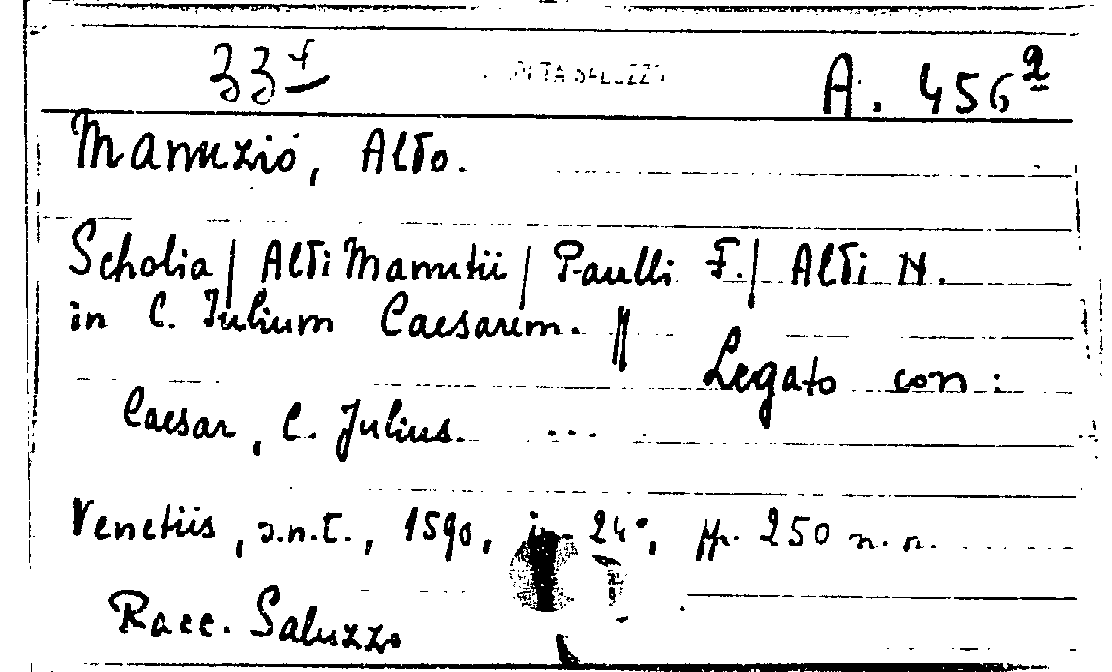 33 A. 456²
Manuzio, Aldo.
Scholia | Aldi Manutii | Paulli F. | Aldi N.
in C. Iulium Caesarem. || Legato con:
Caesar, C. Julius. ...
Venetiis, s.n.t., 1590, in 24°, pp. 250 n.n.
Racc. Saluzzo